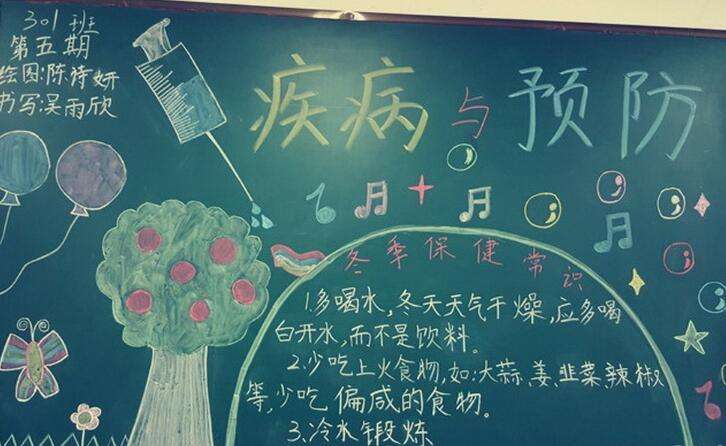 301班
第五期
绘图:陈诗妍
书写:吴雨欣
疾病与预防
冬季保健常识
1.多喝水,冬天天气干燥,应多喝
白开水,而不是饮料。
2.少吃上火食物,如:大蒜、姜、韭菜、辣椒
等,少吃偏咸的食物。
3.冷水锻炼